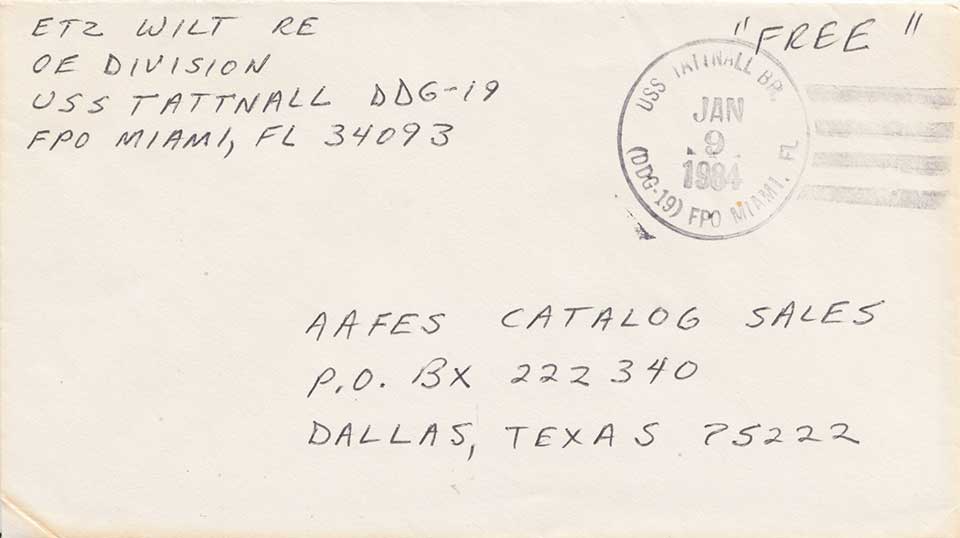 ET2 WILT RE
OE DIVISION
USS TATTNALL DDG-19
FPO MIAMI, FL 34093
"FREE"
USS TATTNALL BR.
JAN
9
1984
(DDG-19) FPO MIAMI, FL
AAFES CATALOG SALES
P.O. BX 222340
DALLAS, TEXAS 75222